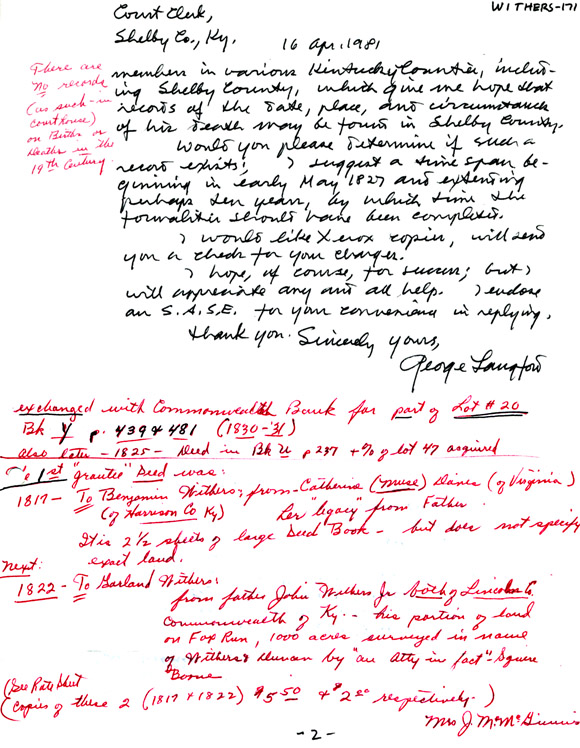 WITHERS-171
Court Clerk,
Shelby Co., Ky. 16 Apr. 1981
There are
No records
(as such - in
courthouse)
on Births or
Deaths in the
19th Century.
members in various Kentucky Counties, includ-
ing Shelby County, which give me hope that
records of the date, place, and circumstances
of his death may be found in Shelby County.
Would you please determine if such a
record exists; I suggest a time span be-
ginning in early May 1827 and extending
perhaps ten years, by which time the
formalities should have been completed.
I would like Xerox copies, will send
you a check for your charges.
I hope, of course, for success; but I
will appreciate any and all help. I enclose
an S.A.S.E. for your convenience in replying.
Thank you. Sincerely yours,
George Langford
exchanged with Commonwealth Bank for part of Lot #20
Bk Y p. 439 & 481 (1830-31)
also later - 1825 - Deed in Bk U p 237 + % of lot 47 acquired
1st "grantee" Deed was:
1817 - To Benjamin Withers; from - Catherine (Muse) Danes (of Virginia)
(of Harrison Co Ky) her "legacy" from Father.
It is 2 1/2 sheets of large Deed Book - but does not specify
exact land.
Next:
1822 - To Garland Withers:
from father John Withers Jr both of Lincoln Co.
Commonwealth of Ky -- his portion of land
on Fox Run, 1000 acres surveyed in name
of Withers & Duncan by "an Atty in fact" - Squire
Boone
(See Rate Sheet
(Copies of these 2 (1817 & 1822) $5.50 & $2.00 respectively.)
Mrs J. McMcGinnis
-2-